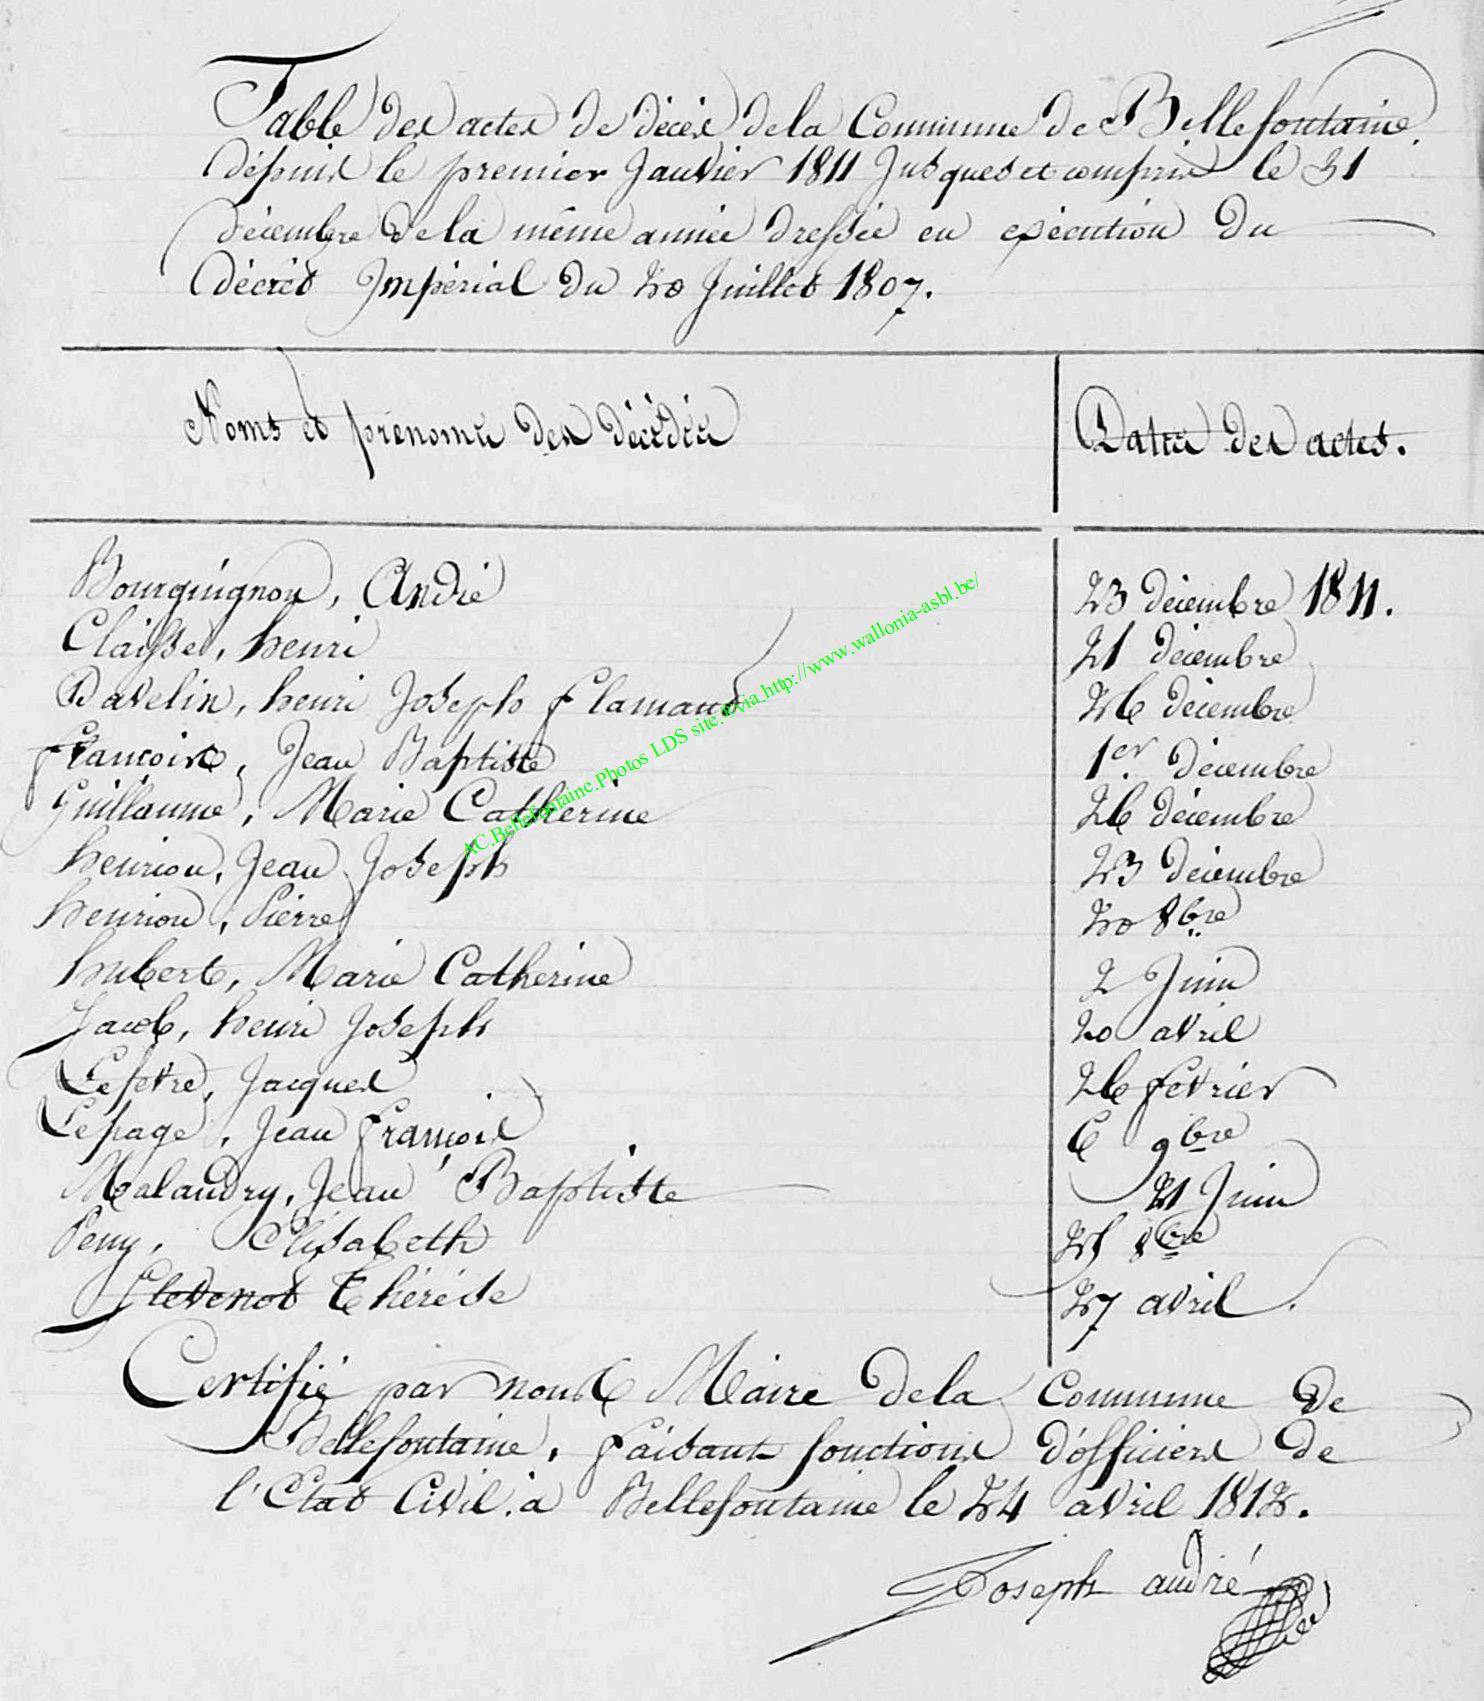 Table des actes de décès de la Commune de Bellefontaine
dépuis le premier Janvier 1811 Jusques et compris le 31
décembre de la même année dressée en exécution du
décrèt Impérial du 20 Juillet 1807.
Noms et prénoms des décédés
Dates des actes.
Bourguignon, André 23 décembre 1811.
Claisse, henri 21 décembre
Davelin, henri Joseph flamand 26 décembre
françoise, Jean Baptiste 1er décembre
Guillaume, Marie Catherine 26 décembre
henrion, Jean Joseph 23 décembre
henrion, Pierre 20 8bre
hubert, Marie Catherine 2 Juin
Jacob, henri Joseph 20 avril
Lefevre, Jacques 26 fevrier
Lepage, Jean François 6 9bre
Malaudry, Jean Baptiste 21 Juin
Peny, Elisabeth 8bre
Thérése 27 avril.
Certifié par nous Maire de la Commune de
Bellefontaine, faisant fonctions d'officiers de
l'Etat Civil. à Bellefontaine le 24 avril 1812.
Joseph andré
AC.Bellefontaine.Photos LDS site.@via http://www.wallonia-asbl.be/